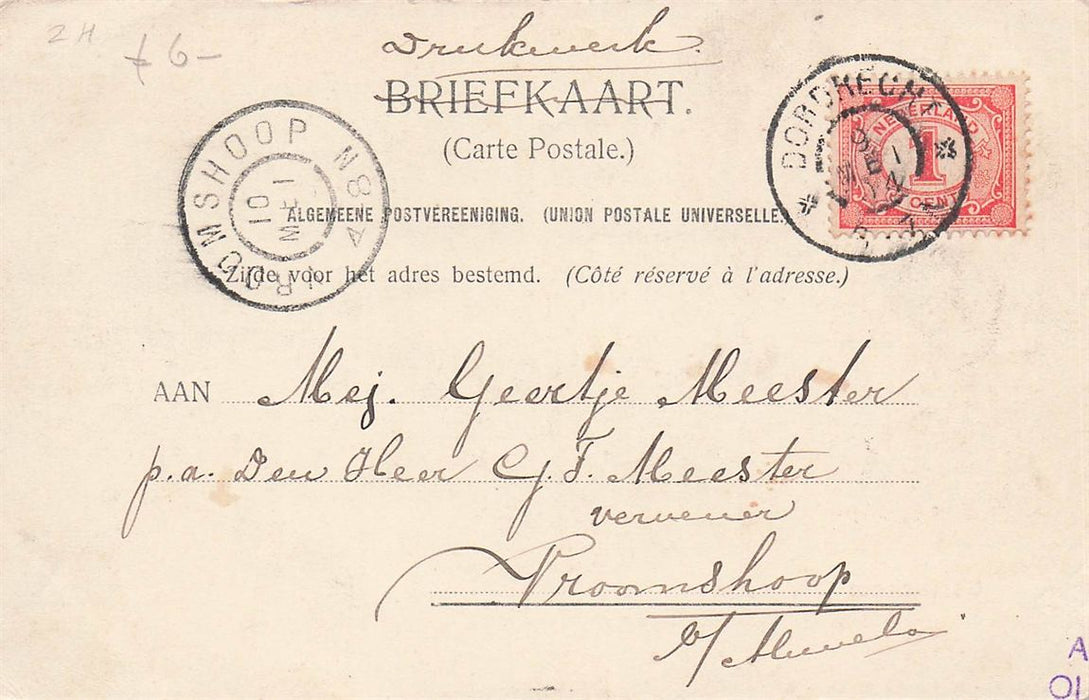 2H £6-
Drukwerk.
BRIEFKAART.
(Carte Postale.)
ALGEMEENE POSTVEREENIGING. (UNION POSTALE UNIVERSELLE.
Zijde voor het adres bestemd. (Côté réservé à l'adresse.)
VROOMSHOOP
1 MEI 01
8N
DORDRECHT
MEI
NEDERLAND
1
CENT
AAN Mej. Geertje Meester
p.a. Den Heer G. F. Meester
vervener
Vroomshoop
b/ Almelo
A
01